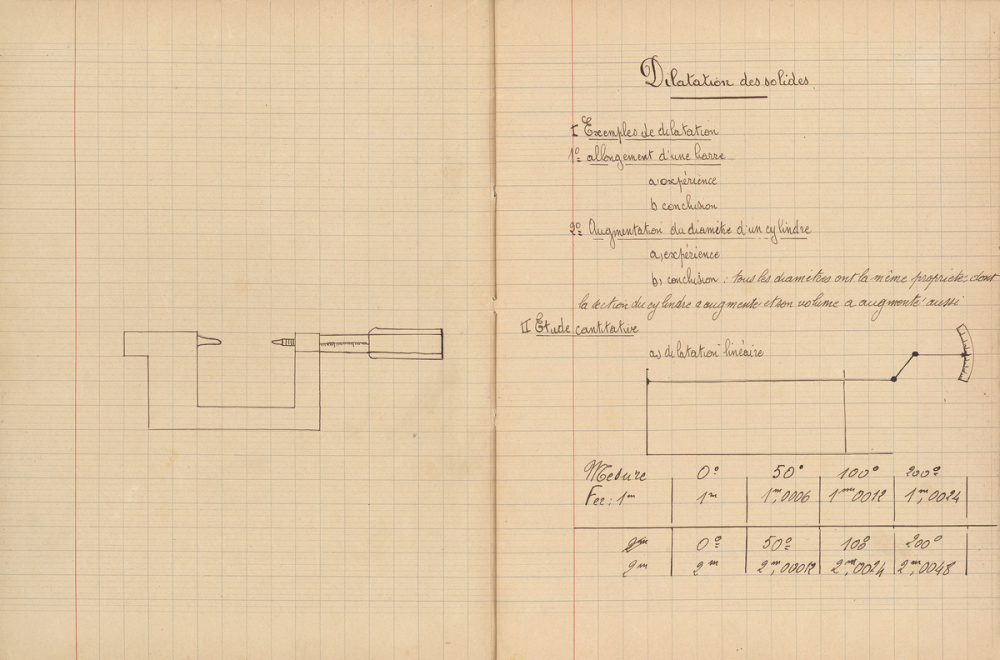 Dilatation des solides
I Exemples de dilatation
1º allongement d'une barre
a expérience
b conclusion
2º Augmentation du diamètre d'un cylindre
a, expérience
b, conclusion : tous les diamètres ont la même propriete, dont
la section du cylindre a augmente et son volume a augmenté aussi
II Etude cantitative
a, dilatation linéaire
Mesure 0° 50° 100° 200º
Fer : 1m 1m 1m,0006 1m 0012 1m,0024
2m 0º 50º 100 200º
2m 2m 2m,00012 2m,0024 2m,0048